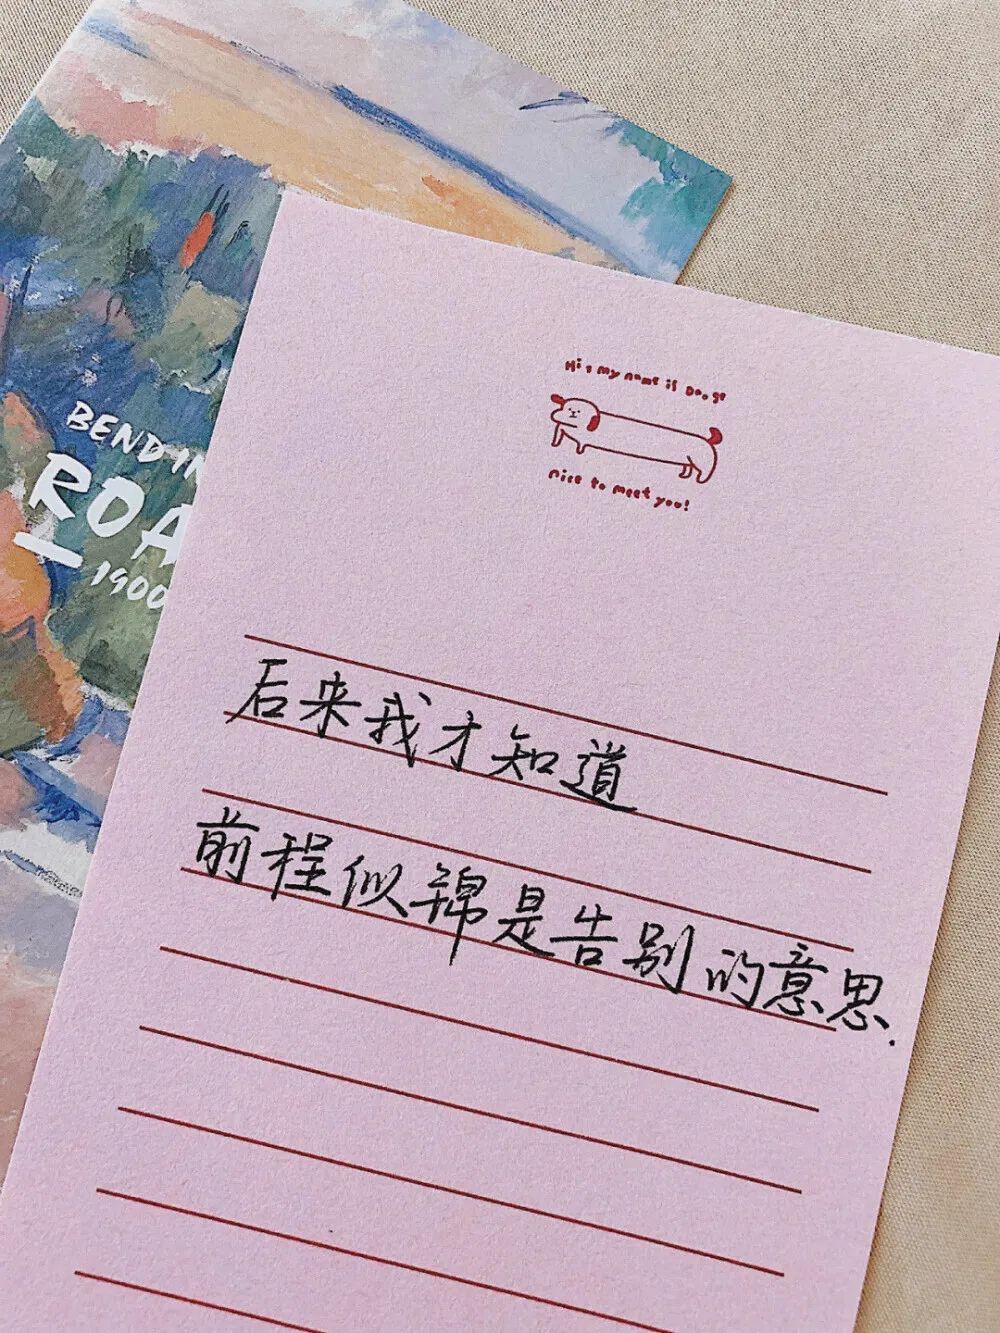 BENDIN
ROA
1900
Hi, my name is Doogs
nice to meet you!
后来我才知道
前程似锦是告别的意思.